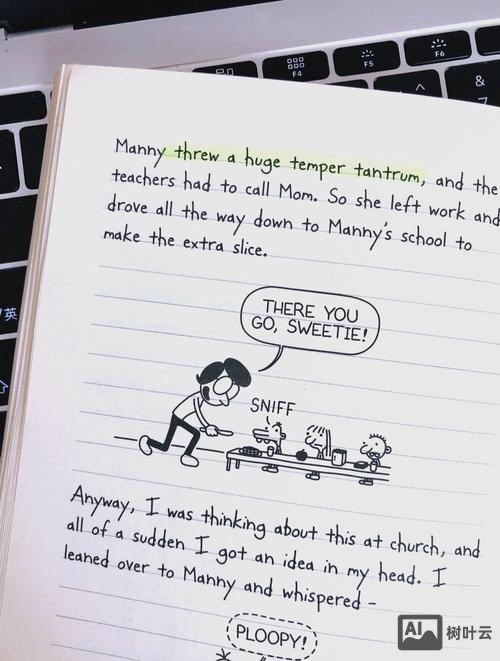 F4
F5
F6
&
7
英
Manny threw a huge temper tantrum, and the
teachers had to call Mom. So she left work and
drove all the way down to Manny's school to
make the extra slice.
THERE YOU
GO, SWEETIE!
SNIFF
Anyway, I was thinking about this at church, and
all of a sudden I got an idea in my head. I
leaned over to Manny and whispered -
PLOOPY!
AI 树叶云